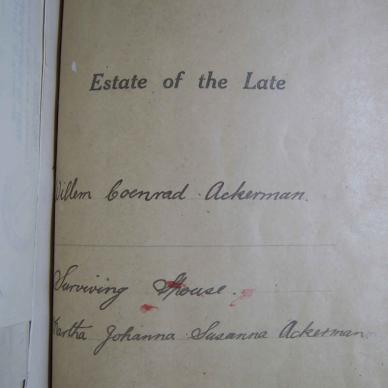 Estate of the Late
Willem Coenrad Ackerman.
Surviving Spouse.
Martha Johanna Susanna Ackerman